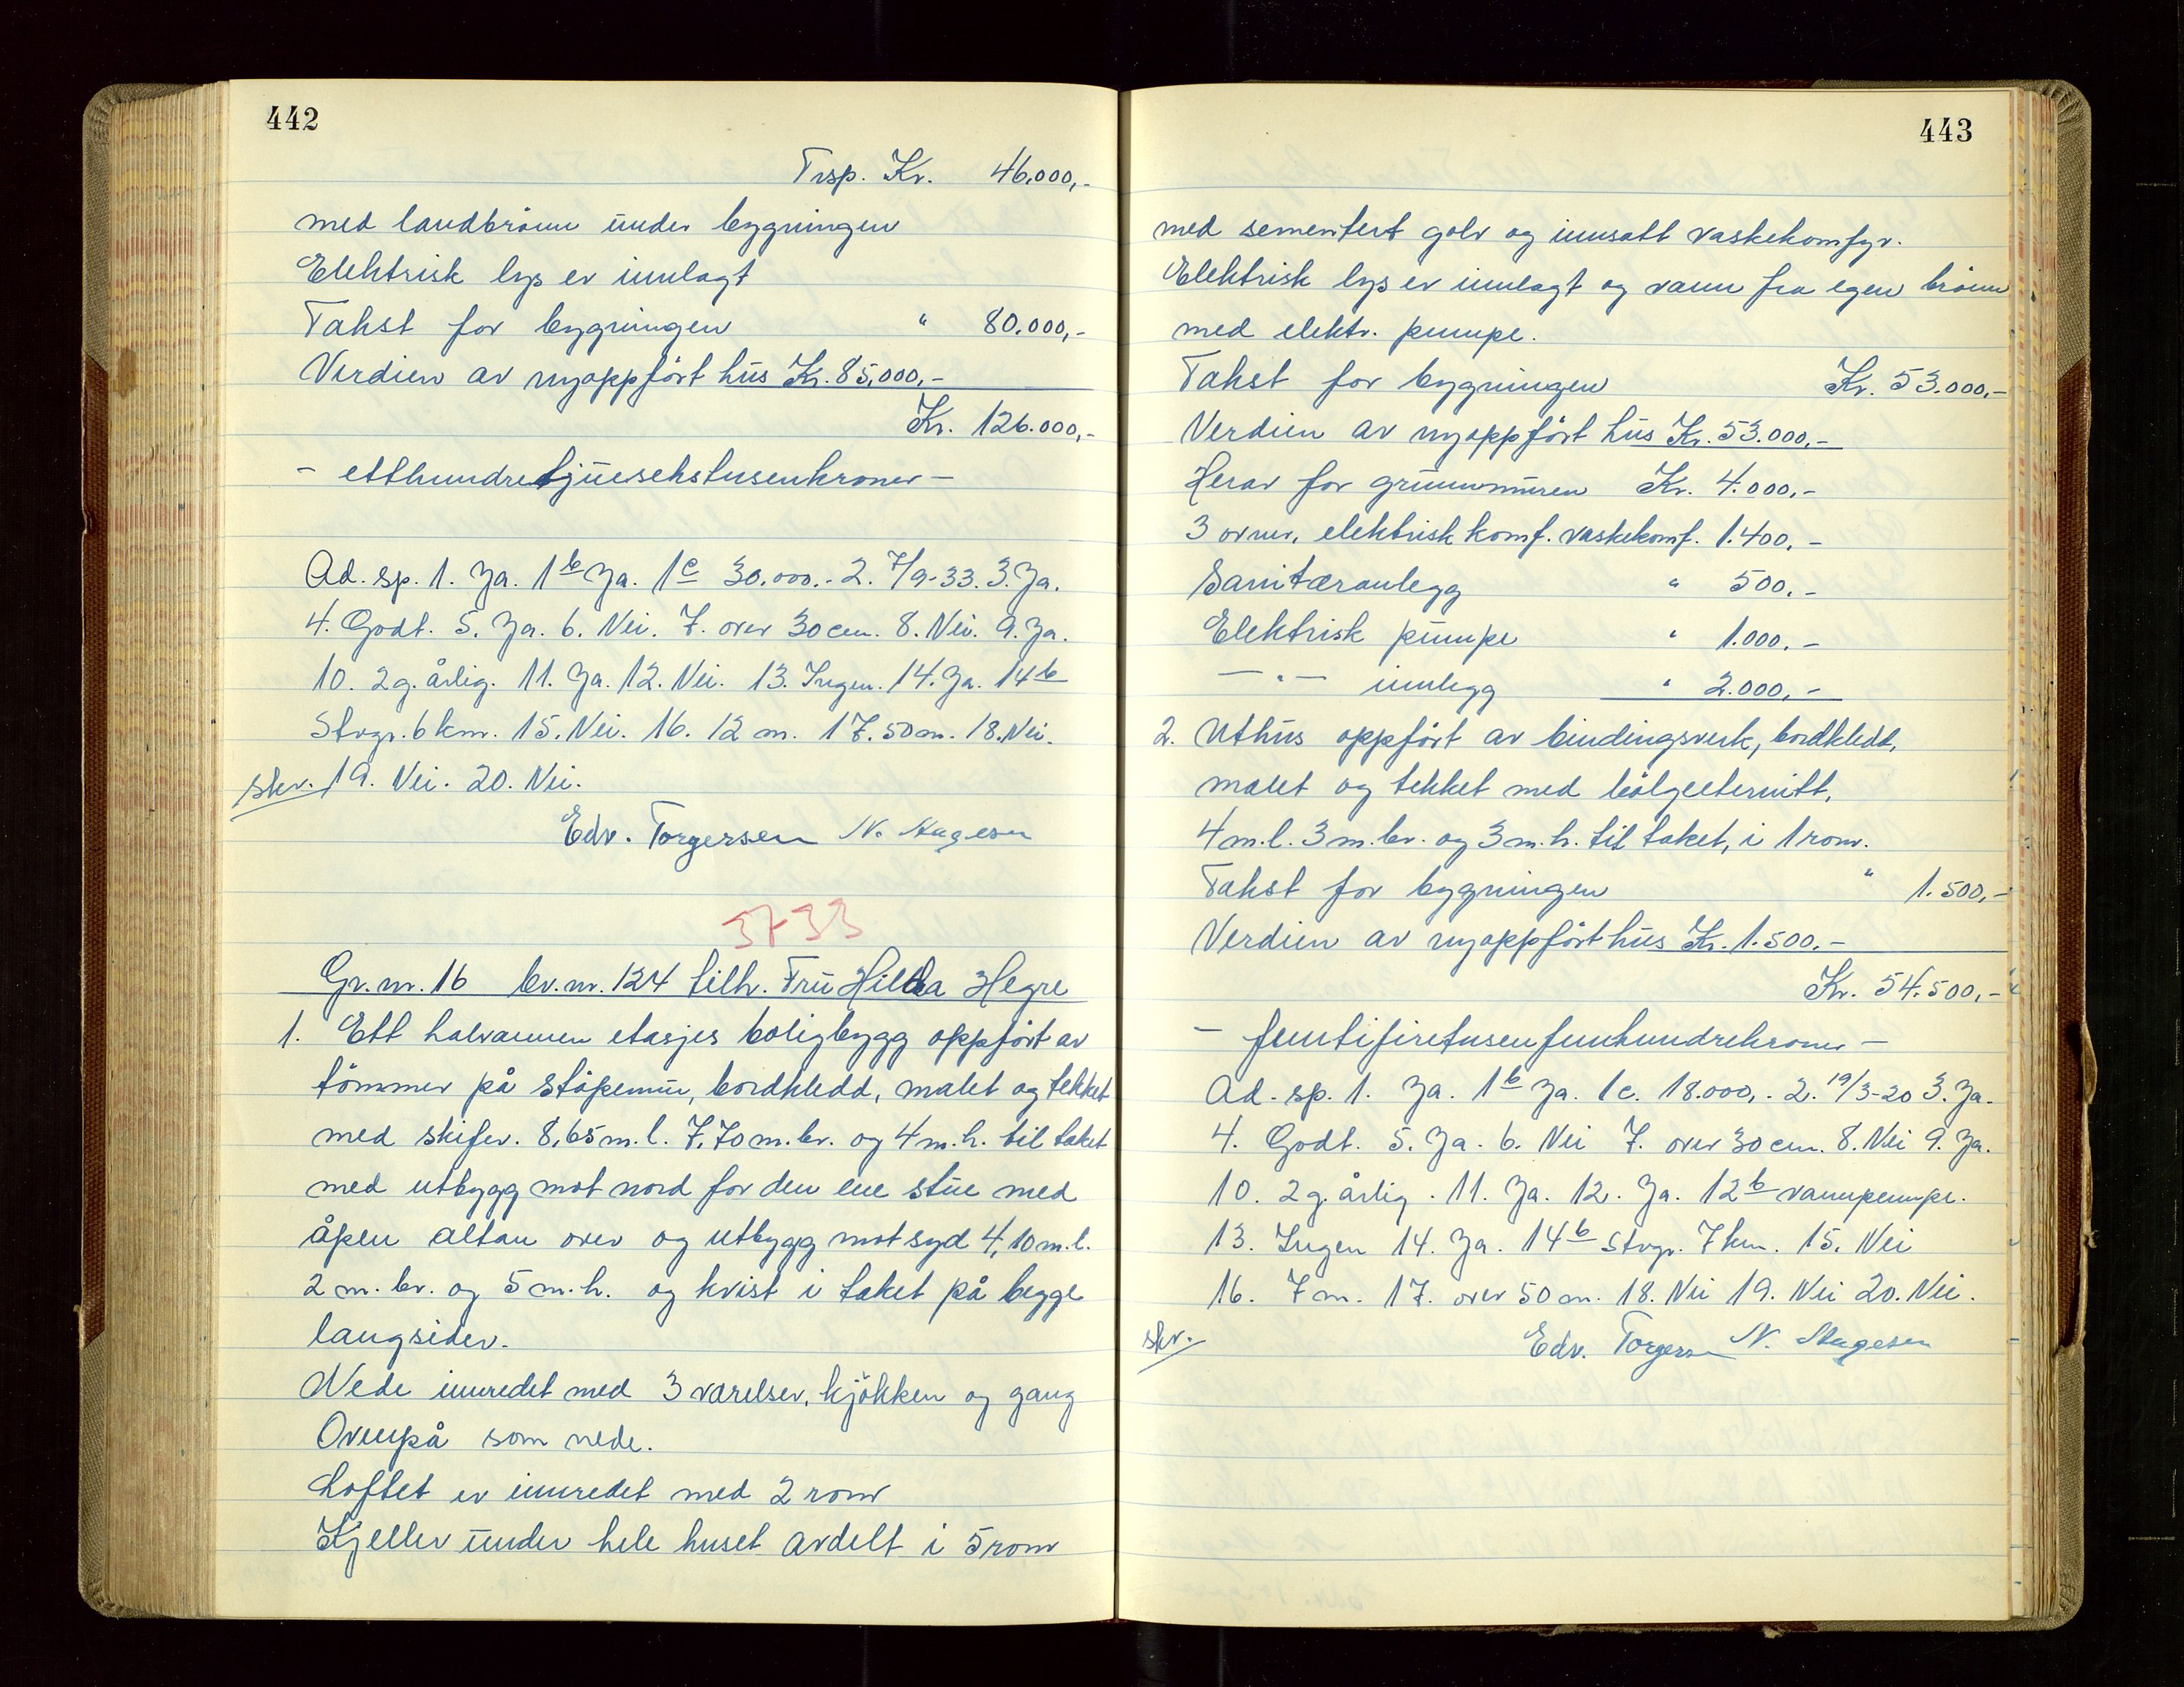 442
Trsp. Kr. 46.000,-
med landbrönn under bygningen
Elektrisk lys er innlagt
Takst for bygningen " 80.000,-
Verdien av nyoppfört hus Kr. 85.000,-
Kr. 126.000,-
- etthundretjuesekstusenkroner -
Ad. sp. 1. Ja. 1b Ja. 1c 30.000.- 2. 7/9-33. 3. Ja.
4. Godt. 5. Ja. 6. Nei. 7. over 30 cm. 8. Nei. 9. Ja.
10. 2 g. årlig. 11. Ja. 12. Nei. 13. Ingen. 14. Ja. 14b
Stvgr. 6 km. 15. Nei. 16. 12 m. 17. 50 m. 18. Nei.
skr. 19. Nei. 20. Nei.
Edv. Torgersen N.
3733
Gr. nr. 16 br. nr. 124 tilh. Fru Hilda Hegre
1. Ett halvannen etasjes boligbygg oppfört av
tömmer på stöpemur, bordkledd, malet og tekket
med skifer. 8,65 m. l. 7,70 m. br. og 4 m. h. til taket
med utbygg mot nord for den ene stue med
åpen altan over og utbygg mot syd 4,10 m. l.
2 m. br. og 5 m. h. og kvist i taket på begge
langsider.
Nede innredet med 3 værelser, kjökken og gang
Ovenpå som nede.
Loftet er innredet med 2 rom
Kjeller under hele huset avdelt i 5 rom
443
med sementert golv og innsatt vaskekomfyr.
Elektrisk lys er innlagt og vann fra egen brönn
med elektr. pumpe.
Takst for bygningen Kr. 53.000,-
Verdien av nyoppfört hus Kr. 53.000,-
Herav for grunnmuren Kr. 4.000,-
3 ovner, elektrisk komf. vaskekomf. 1.400,-
Sanitæranlegg " 500,-
Elektrisk pumpe " 1.000,-
- " - innlegg " 2.000,-
2. Uthus oppfört av bindingsverk, bordkledt,
malet og tekket med bölgeeternitt,
4 m. l. 3 m. br. og 3 m. h. til taket, i 1 rom.
Takst for bygningen " 1.500,-
Verdien av nyoppfört hus Kr. 1.500,-
Kr. 54.500,-
- femtifiretusenfemhundrekroner -
Ad. sp. 1. Ja. 1b Ja. 1c. 18.000,- 2. 19/3-20 3. Ja.
4. Godt. 5. Ja. 6. Nei 7. over 30 cm. 8. Nei 9. Ja.
10. 2 g. årlig. 11. Ja. 12. Ja. 12b vannpumpe.
13. Ingen 14. Ja. 14b Stvgr. 7 km. 15. Nei
16. 7 m. 17. over 50 m. 18. Nei 19. Nei 20. Nei.
skr. Edv. Torgersen N.